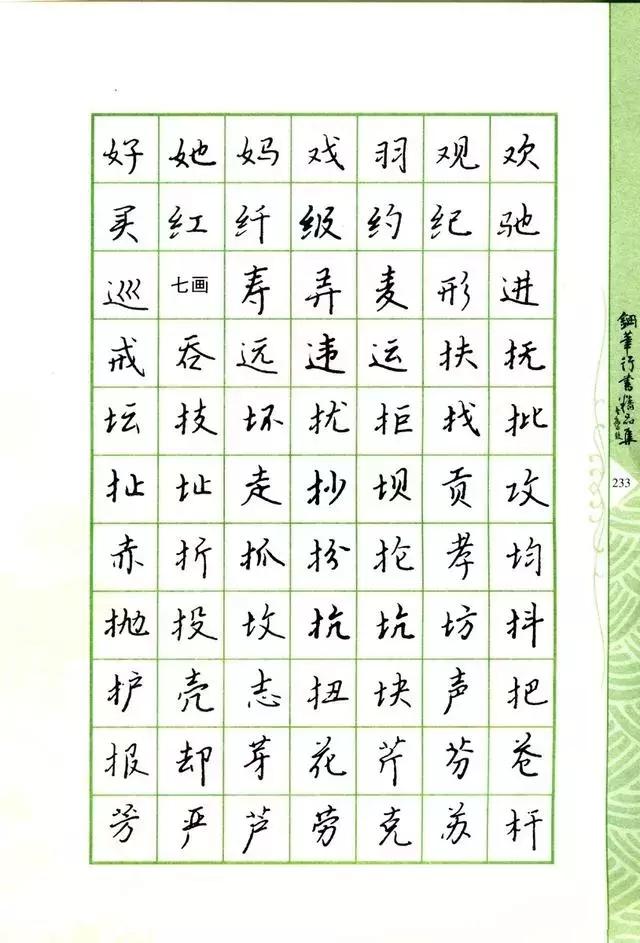 好 她 妈 戏 羽 观 欢
买 红 纤 级 约 纪 驰
巡 七画 寿 弄 麦 形 进
戒 吞 远 违 运 扶 抚
坛 技 坏 扰 拒 找 批
扯 址 走 抄 坝 贡 攻
赤 折 抓 扮 抡 孝 均
抛 投 坟 抗 坑 坊 抖
护 壳 志 扭 块 声 把
报 却 芽 花 芹 芬 苍
芳 严 芦 劳 克 苏 杆
鋼筆行書精品集
233